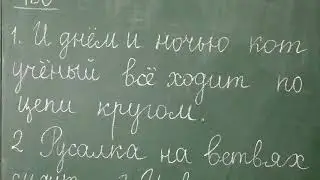 1. И днём и ночью кот
учёный всё ходит по
цепи кругом.
2 Русалка на ветвях